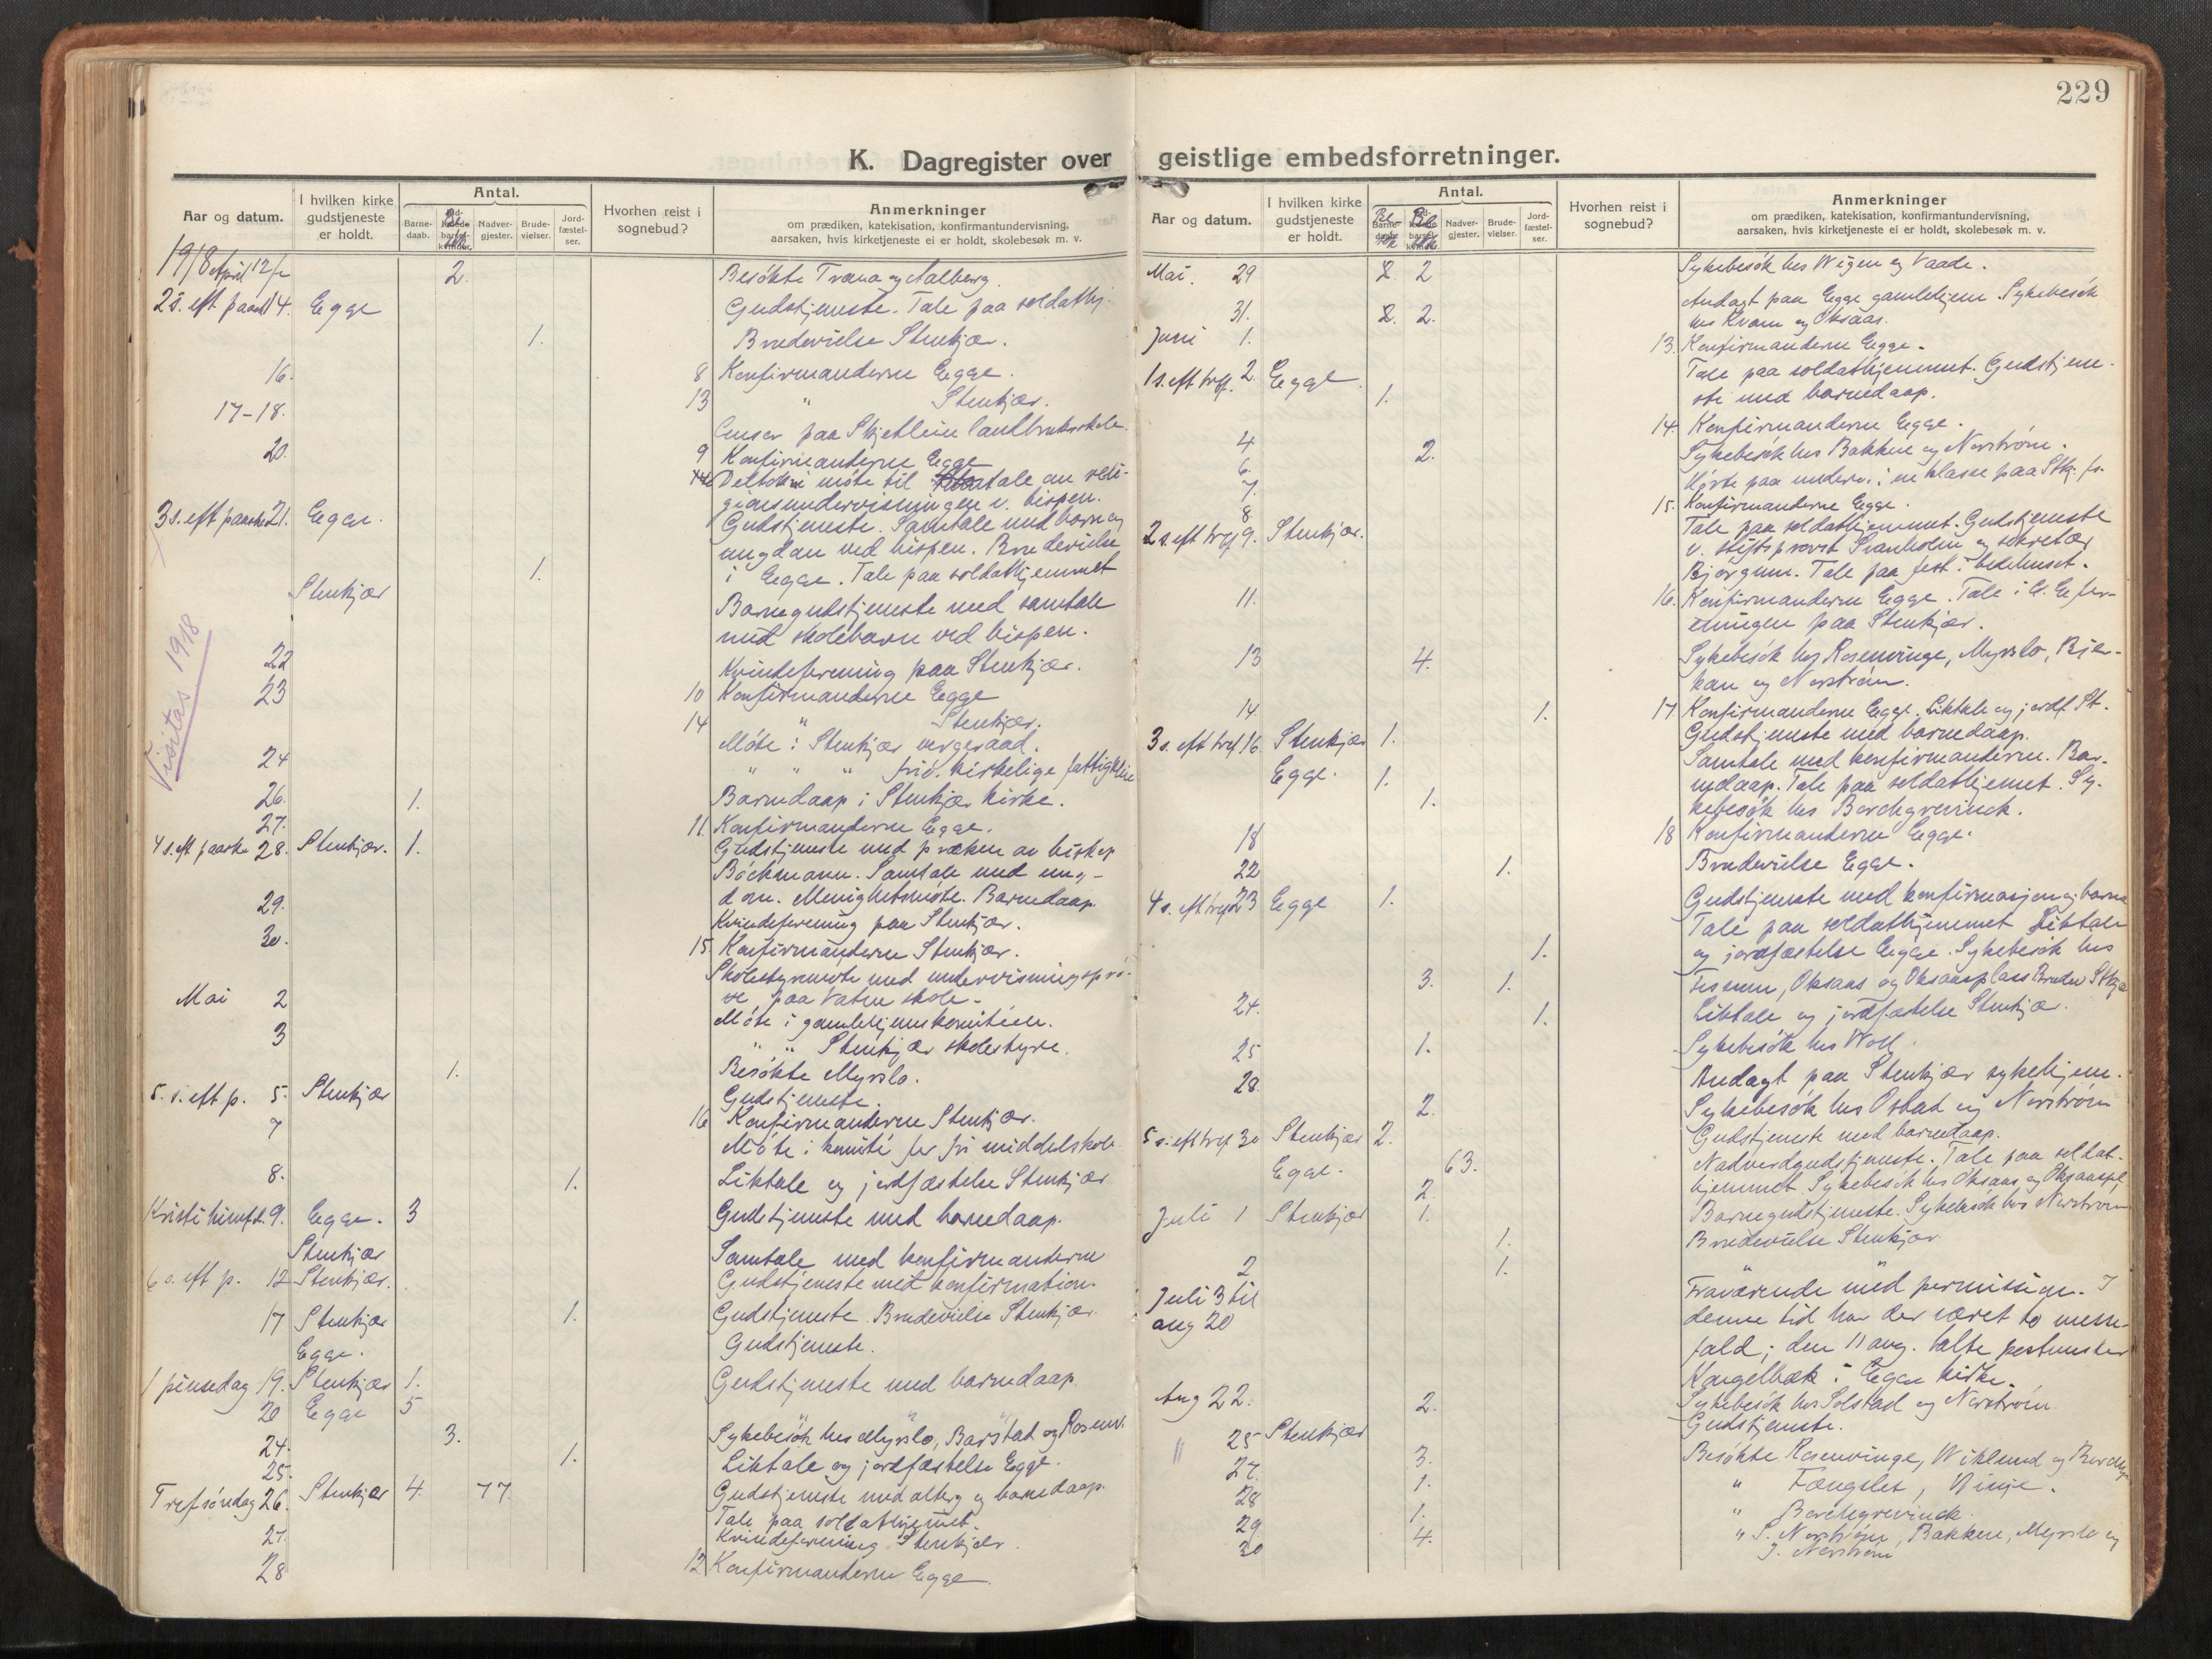 229
K. Dagregister over geistlige embedsforretninger.
Aar og datum.
I hvilken kirke gudstjeneste er holdt.
Antal.
Barne-daab.
Nadver-gjester.
Brude-vielser.
Jord-fæstel-ser.
Hvorhen reist i sognebud?
Anmerkninger
om prædiken, katekisation, konfirmantundervisning,
aarsaken, hvis kirketjeneste ei er holdt, skolebesøk m. v.
1918 April 12 2. Besökte Trana og Aalberg.
2 s. eft paaske 14. Egge Gudstjeneste. Tale paa soldathj.
1. Brudevielse Stenkjær.
16. 8 Konfirmanderne Egge.
17-18. 13 " Stenkjær.
paa Skjetlein landbruksskole.
20. 9 Konfirmanderne Egge
Deltok i möte til samtale om reli-
gionsundervisningen v. bispen.
3 s. eft paaske 21. Egge. Gudstjeneste. Samtale med barn og
ungdom ved bispen. Brudevielse
1. i Egge. Tale paa soldathjemmet
Stenkjær Barnegudstjeneste med samtale
med skolebarn ved bispen.
Visitas 1918
22 Kvindeforening paa Stenkjær.
23 10 Konfirmanderne Egge
14 " Stenkjær.
Möte i Stenkjær vergeraad.
24 " " " frie kirkelige fattigpleie
26. 1. Barnedaap i Stenkjær kirke.
27. 11. Konfirmanderne Egge.
4 s. eft paaske 28. Stenkjær. 1. Gudstjeneste med præken av biskop
Böckmann. Samtale med ung-
dom. Menighetsmöte. Barnedaap.
29. Kvindeforening paa Stenkjær.
30. 15 Konfirmanderne Stenkjær.
Skolestyremöte med undervisningsprö-
ve paa Vatne skole.
Mai 2 Möte i gamlehjemskomiteen.
3 " " Stenkjær skolestyre.
1. Besökte Myrslo.
5. s. eft p. 5. Stenkjær Gudstjeneste.
7 16 Konfirmanderne Stenkjær.
Möte i komité for fri middelskole.
8. 1. Liktale og jordfæstelse Stenkjær
Kristi himf. 9. Egge. 3 Gudstjeneste med barnedaap.
Stenkjær Samtale med konfirmanderne
6 s. eft p. 12 Stenkjær. Gudstjeneste med konfirmation.
17 Stenkjær 1. Gudstjeneste. Brudevielse Stenkjær.
Egge. Gudstjeneste.
1 pinsedag 19. Stenkjær 1. Gudstjeneste med barnedaap.
20 Egge 5 " " "
24. 3. Sykebesök hos Myrslo, Barstad og Rosenv.
25. 1. Liktale og jordfæstelse Egge.
Trefsöndag 26. Stenkjær 4. 77. Gudstjeneste med alterg. og barnedaap.
Tale paa soldathjemmet.
27. Kvindeforening Stenkjær.
28 12 Konfirmanderne Egge.
Aar og datum.
I hvilken kirke gudstjeneste er holdt.
Antal.
Nadver-gjester.
Brude-vielser.
Jord-fæstel-ser.
Hvorhen reist i sognebud?
Anmerkninger
om prædiken, katekisation, konfirmantundervisning,
aarsaken, hvis kirketjeneste ei er holdt, skolebesøk m. v.
Mai. 29 2 2 Sykebesök hos Wigen og Vaade.
Andagt paa Egge gamlehjem. Sykebesök
31. 2. 2. hos Kvam og Oksaas.
Juni 1. 13. Konfirmanderne Egge.
1 s. eft tref. 2. Egge Tale paa soldathjemmet. Gudstjene-
1. ste med barnedaap.
4 14. Konfirmanderne Egge.
6. 2. Sykebesök hos Bakken og Norström.
7. Hörte paa underv. i en klasse paa Stkj. fs.
8. 15. Konfirmanderne Egge.
2 s. eft tref 9. Stenkjær. Tale paa soldathjemmet. Gudstjeneste
v. stiftsprovst Svanholm og sekretær
Björgum. Tale paa fest i bedehuset.
11. 16. Konfirmanderne Egge. Tale i
paa Stenkjær.
13 4. Sykebesök hos Rosenvinge, Myrslo, Bjer-
kan og Norström.
14. 1. 17 Konfirmanderne Egge. Liktale og jordf. St.
3 s. eft tref 16. Stenkjær 1. Gudstjeneste med barnedaap.
Egge. 1. Samtale med konfirmanderne. Bar-
nedaap. Tale paa soldathjemmet. Sy-
1. kebesök hos Borchgrevinck.
18 18 Konfirmanderne Egge.
22 1. Brudevielse Egge.
4 s. eft tref 23 Egge 1. Gudstjeneste med konfirmasjon og barne
Tale paa soldathjemmet Liktale
1. og jordfæstelse Egge. Sykebesök hos
3. 1. Oksaas og Oksaasplass Brudev Stkjær
24. 1. Liktale og jordfæstelse Stenkjær.
25 1. Sykebesök hos Woll.
28. Andagt paa Stenkjær sykehjem.
2. Sykebesök hos Östad og Norström
5 s. eft tref 30 Stenkjær 2. Gudstjeneste med barnedaap.
Egge. 63. Nadverdgudstjeneste. Tale paa soldat-
2. hjemmet. Sykebesök hos Oksaas og Oksaaspl.
Juli 1 Stenkjær 1. Barnegudstjeneste. Sykebesök hos Norström
1. Brudevielse Stenkjær
2 1. " "
Juli 3 til Fraværende med permission. I
aug 20 denne tid har der været to messe-
fald; den 11 aug. talte postmester
Kongelbæk i Egge kirke.
Aug 22. 2. Sykebesök hos Solstad og Norström.
" 25 Stenkjær Gudstjeneste.
27. 3. Besökte Rosenvinge, Wiklund og Borchg.
28 1. " Fængslet, Winje.
29 1. " Borchgrevinck.
30 4. " S. Norström, Bakken, Myrslo og
J. Norström